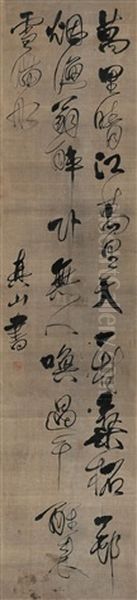 萬里晴江萬里天一邨桑柘一邨
烟漁翁醉卧無人喚過午醒来
雪滿船
山書